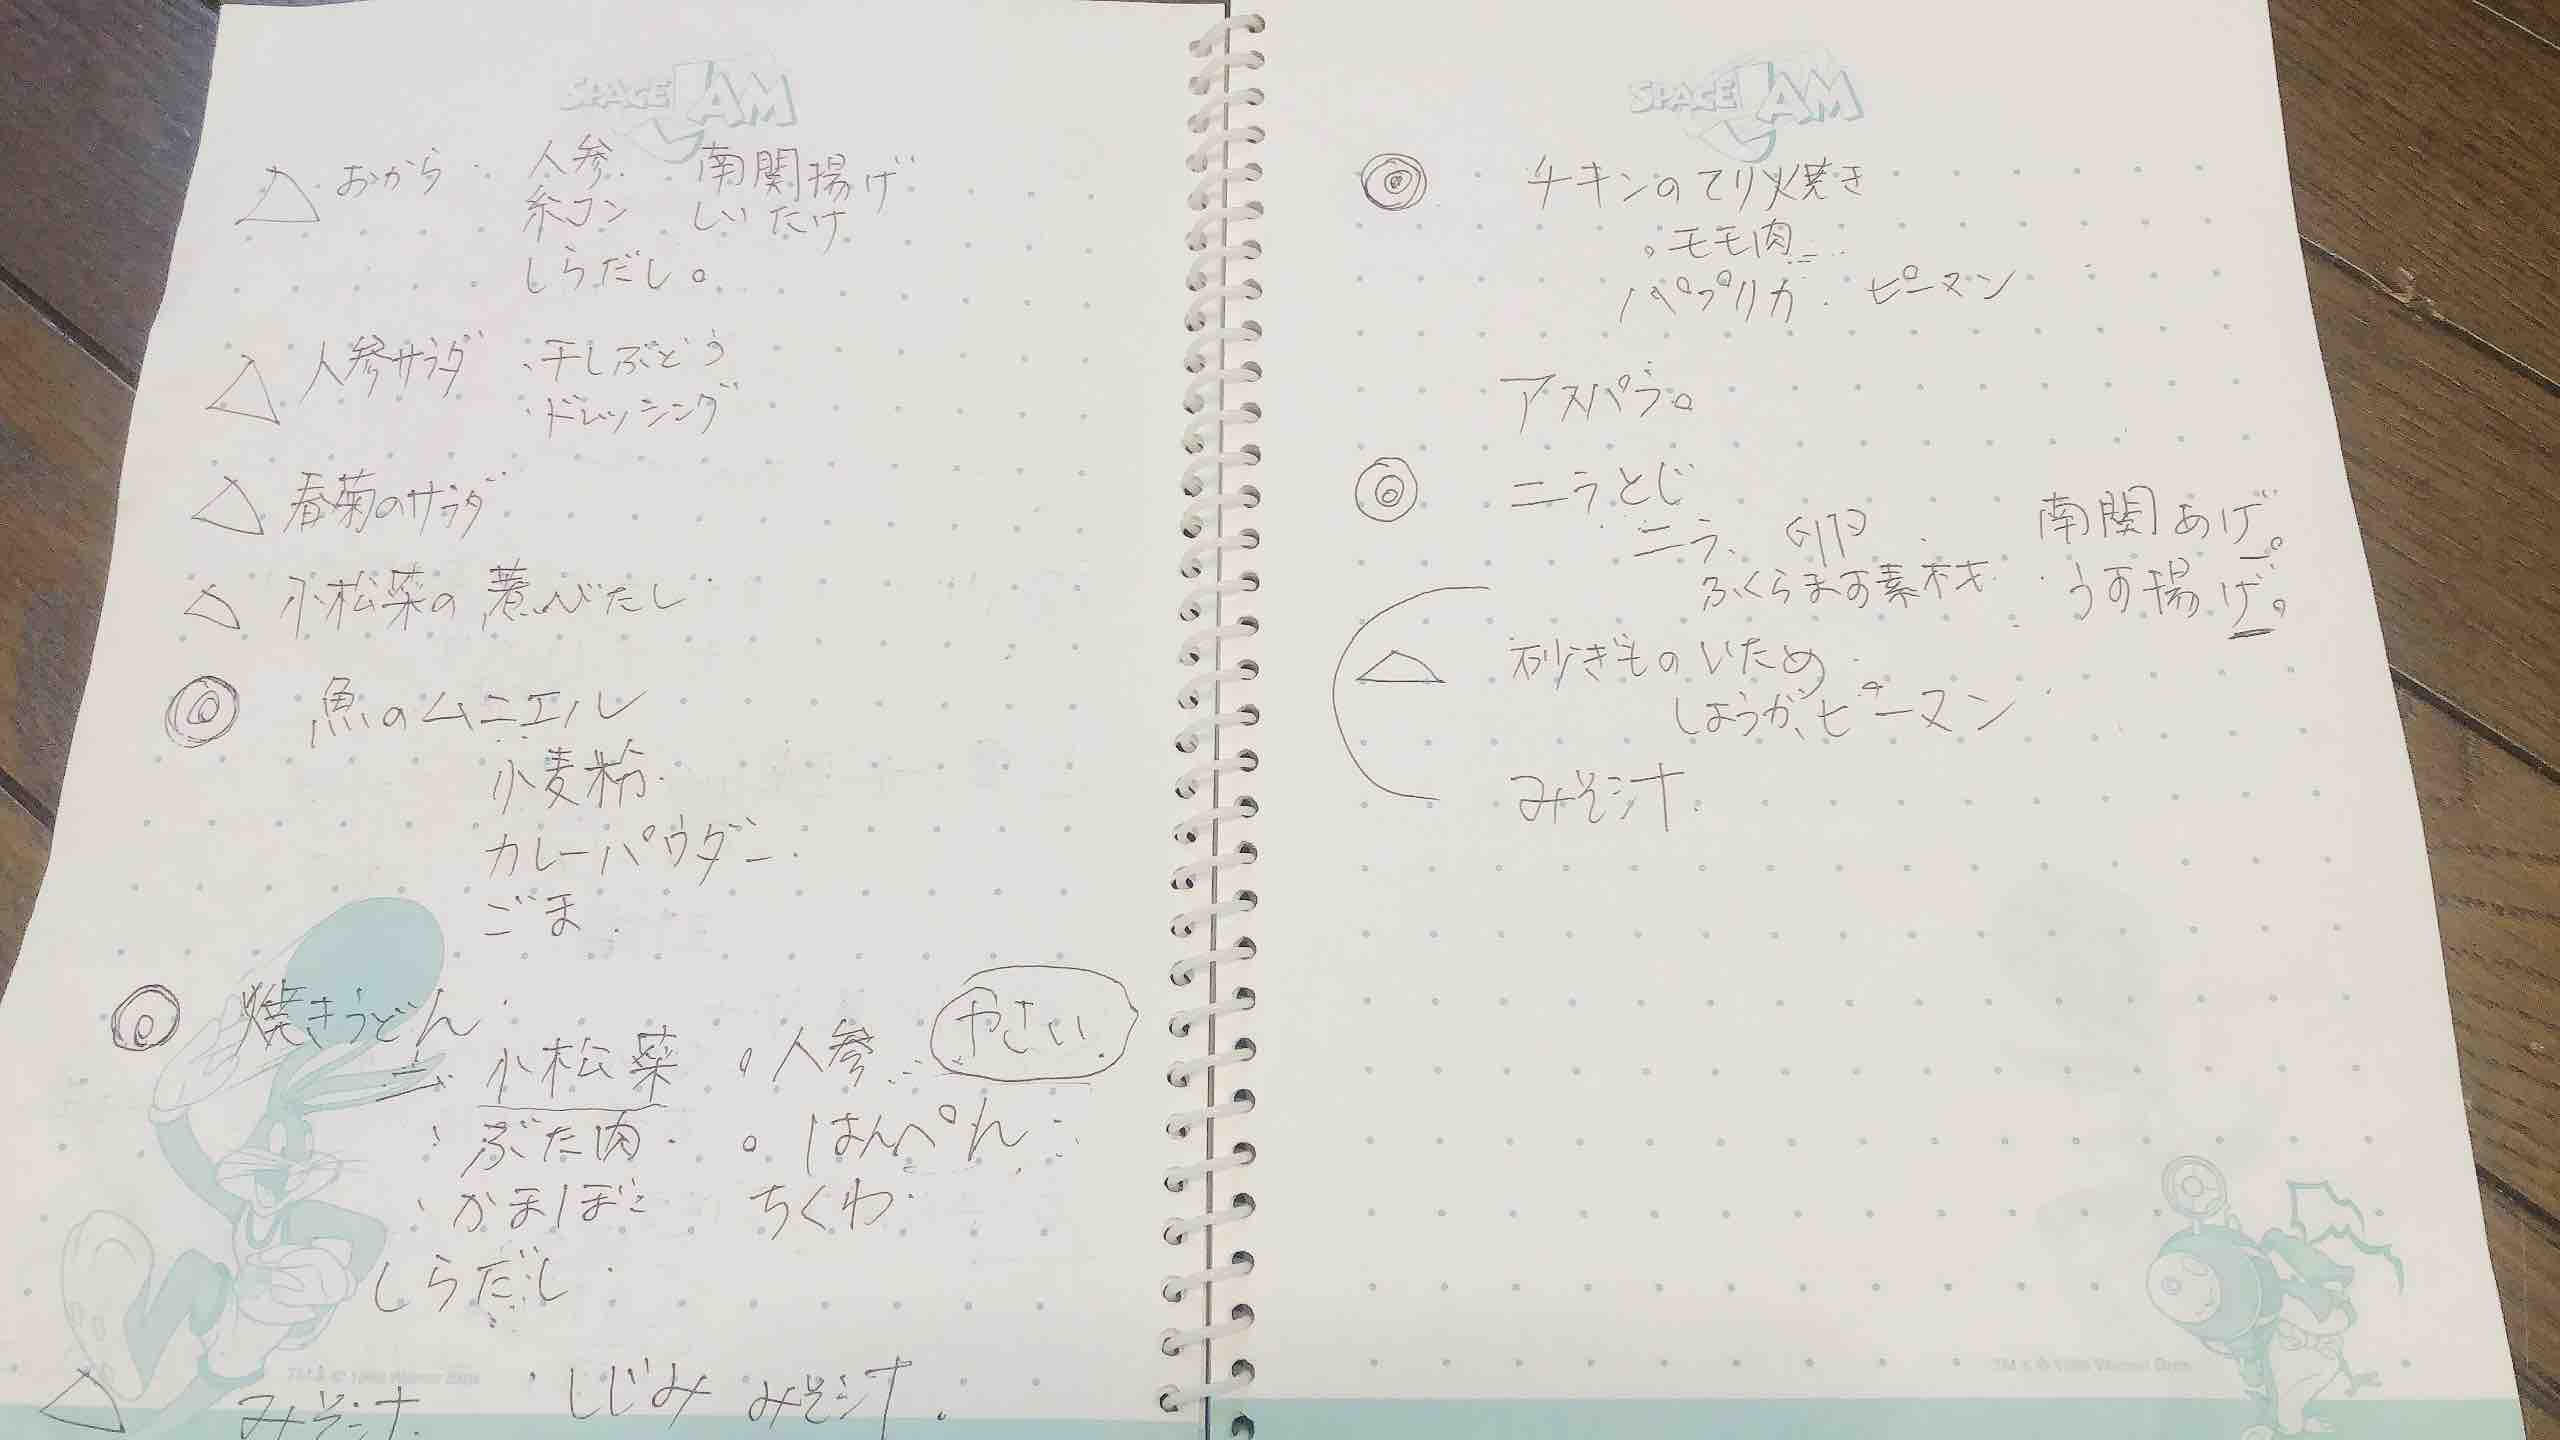 SPACE JAM
△ おから 人参 南関揚げ
糸コン しいたけ
しらだし。
△ 人参サラダ ・干しぶどう
・ドレッシング
△ 春菊のサラダ
△ 小松菜の煮びたし
◎ 魚のムニエル
小麦粉
カレーパウダー
ごま
◎ 焼きうどん
小松菜 。人参 やさい
ぶた肉 。はんぺん
かまぼこ ちくわ
しらだし
△ みそ汁 ・しじみ みそ汁.
SPACE JAM
◎ チキンのてり焼き
。モモ肉
パプリカ ピーマン
アスパラ。
◎ ニラとじ
ニラ、卵 南関あげ。
ふくらます素材 うす揚げ。
△ 砂ぎものいため
しょうが、ピーマン
みそ汁.